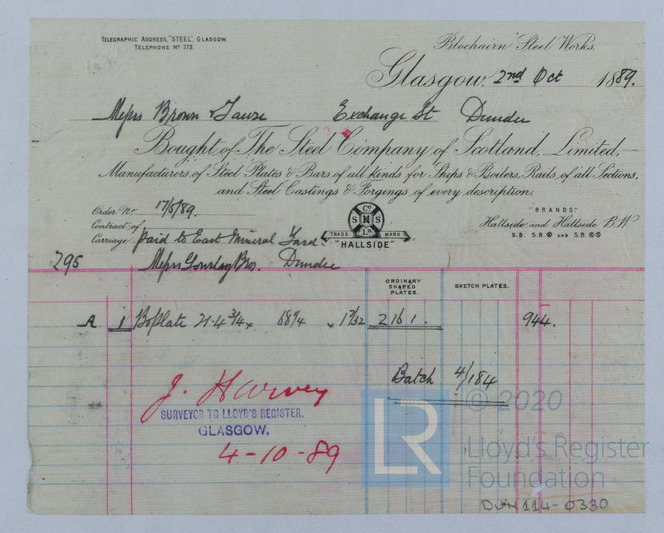 TELEGRAPHIC ADDRESS, "STEEL", GLASGOW.
TELEPHONE No 773.
Blochairn Steel Works.
Glasgow, 2nd Oct 1889.
Messrs Brown & 
Exchange St Dundee
Bought of The Steel Company of Scotland, Limited,
Manufacturers, of Steel Plates & Bars of all kinds for Ships & Boilers, Rails, of all Sections,
and Steel Castings & Forgings of every description.
Order No 17/5/89.
Contract of
Carriage paid to East Mineral Yard
Co
S N S
Ld
TRADE MARK
"HALLSIDE"
"BRANDS"
Hallside and Hallside B.W
S.B. S.B. AND S.B.
295 Messrs Gourlay Bros. Dundee
ORDINARY SHAPED PLATES.
SKETCH PLATES.
A 1 BoPlate 21.4 3/4 x 68 1/4 x 17/32 2 16 1. 944.
Batch 4/184
J. Harvey
SURVEYOR TO LLOYD'S REGISTER,
GLASGOW.
4-10-89
LR
© 2020
Lloyd's Register
Foundation
DUN 114-0330